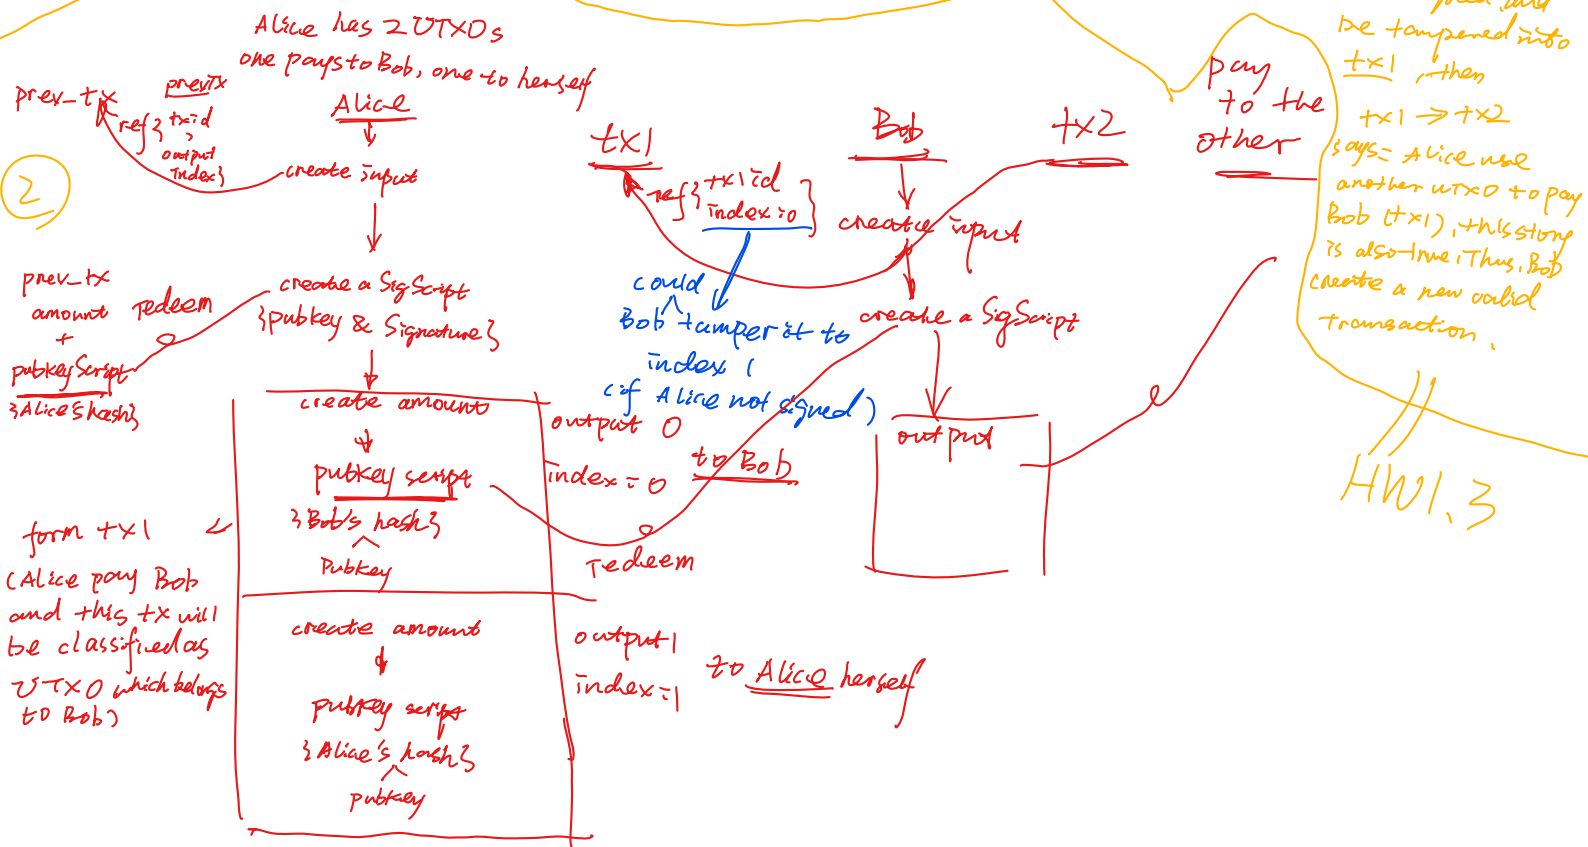 Alice has 2 UTXOs
one pays to Bob, one to herself
prev_tx
ref { prevTx
txid
,
output
index }
Alice
create input
2
prev_tx
amount
+
pubkeyScript
{Alice's hash}
redeem
create a SigScript
{pubkey & Signature}
create amount
pubkey script
{Bob's hash}
Pubkey
output 0
index = 0
to Bob
redeem
form tx1
(Alice pay Bob
and this tx will
be classified as
UTXO which belongs
to Bob)
create amount
pubkey script
{Alice's hash}
pubkey
output 1
index = 1
to Alice herself
tx1
ref { tx1 id
index = 0 }
could
Bob tamper it to
index 1
(if Alice not signed)
Bob
create input
create a SigScript
output
tx2
pay
to the
other
and
be tampered into
tx1, then
tx1 → tx2
says = Alice use
another UTXO to pay
Bob (tx1), this story
is also true. Thus, Bob
create a new valid
transaction.
HW1.3